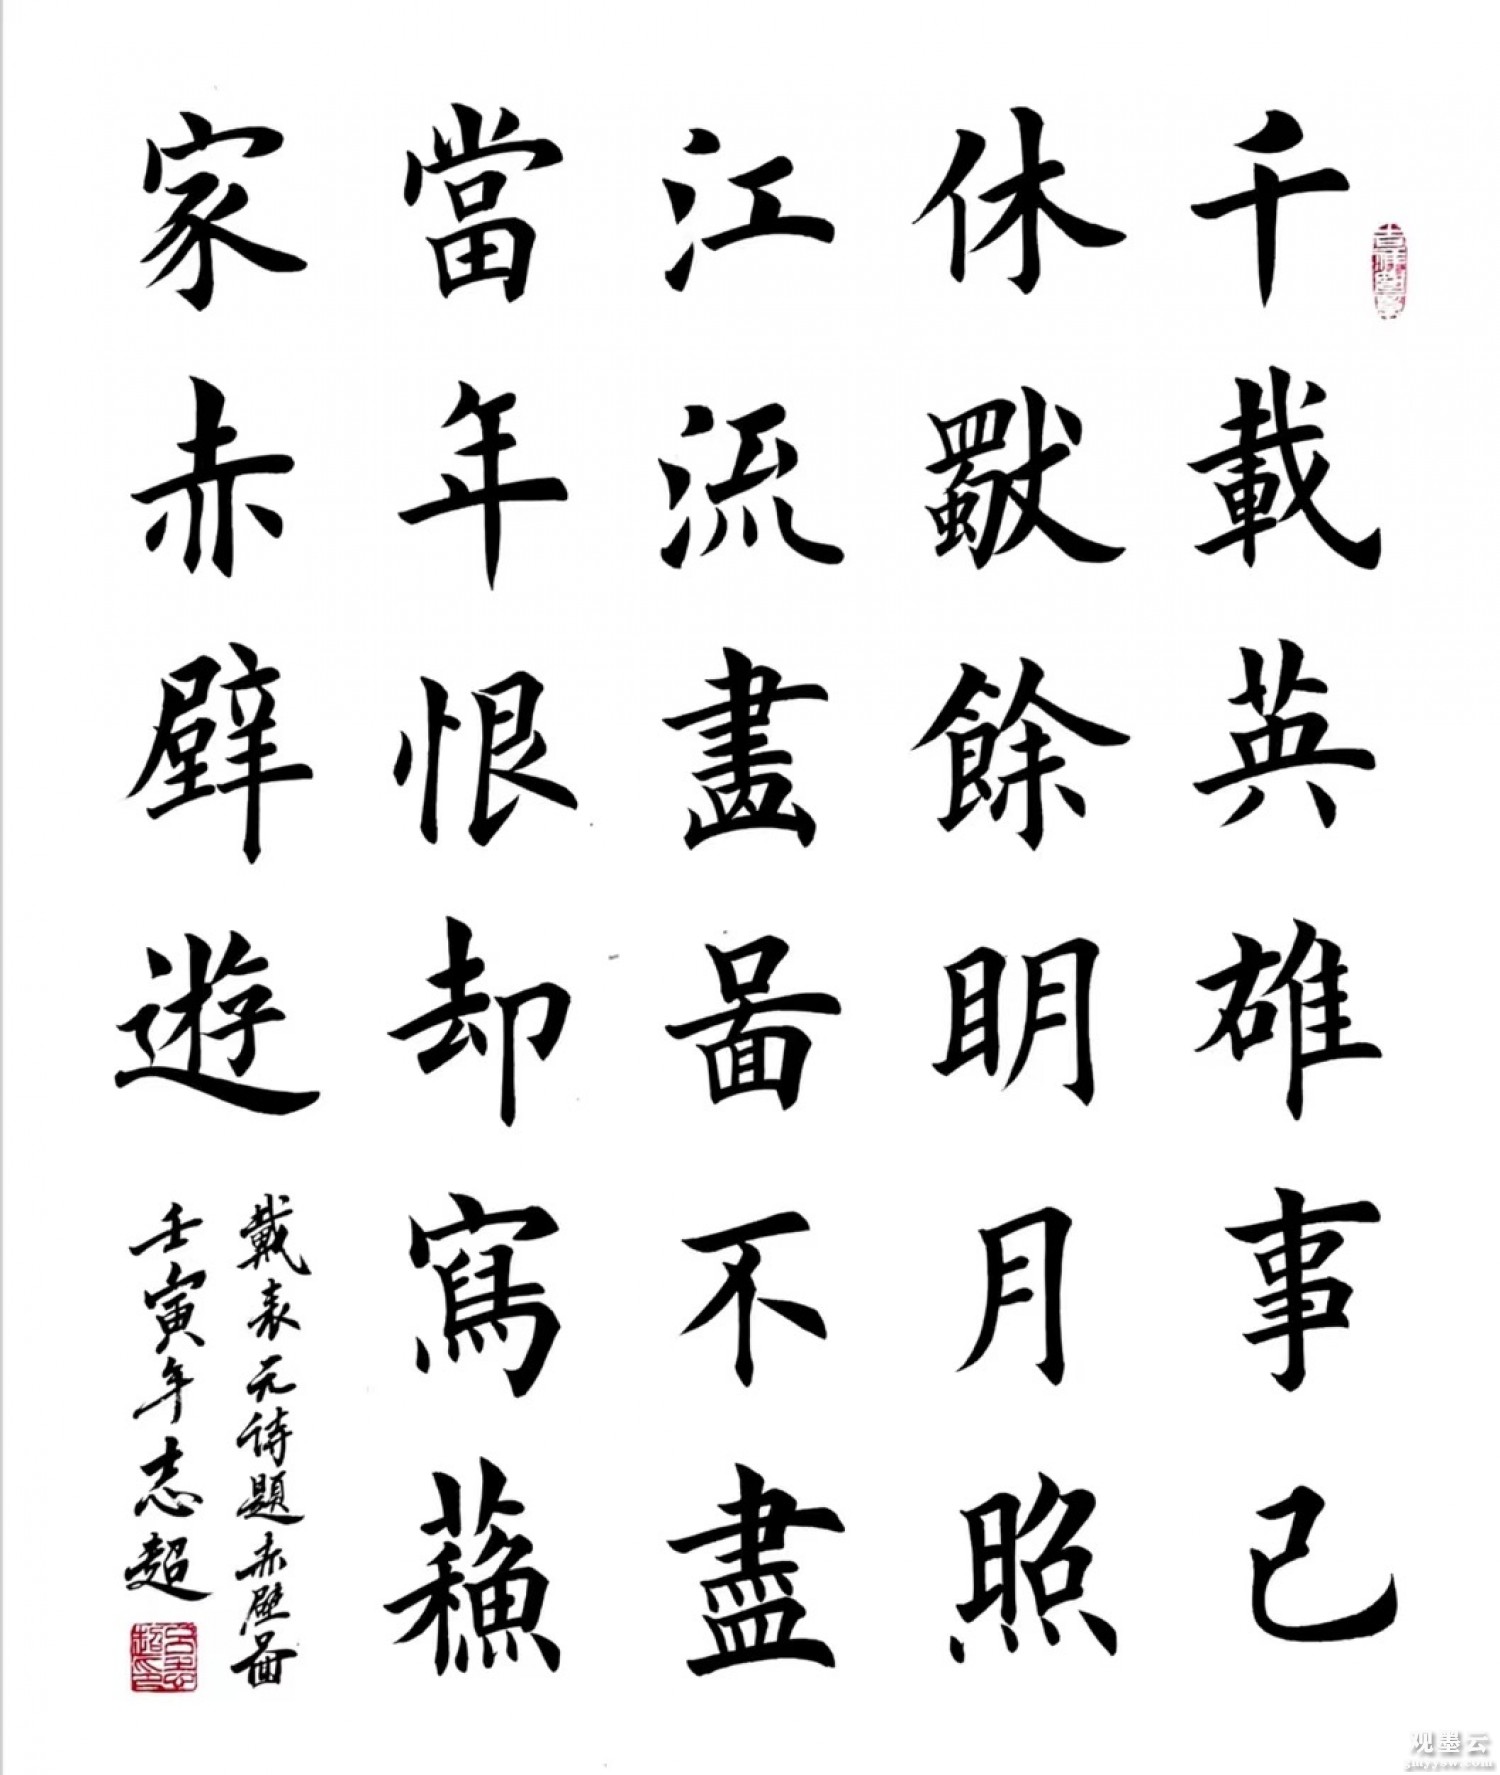 千載英雄事已
休獨餘眀月照
江流畫啚不盡
當年恨却寫蘓
家赤壁遊
戴表元诗題赤壁啚
壬寅年志超
观墨云